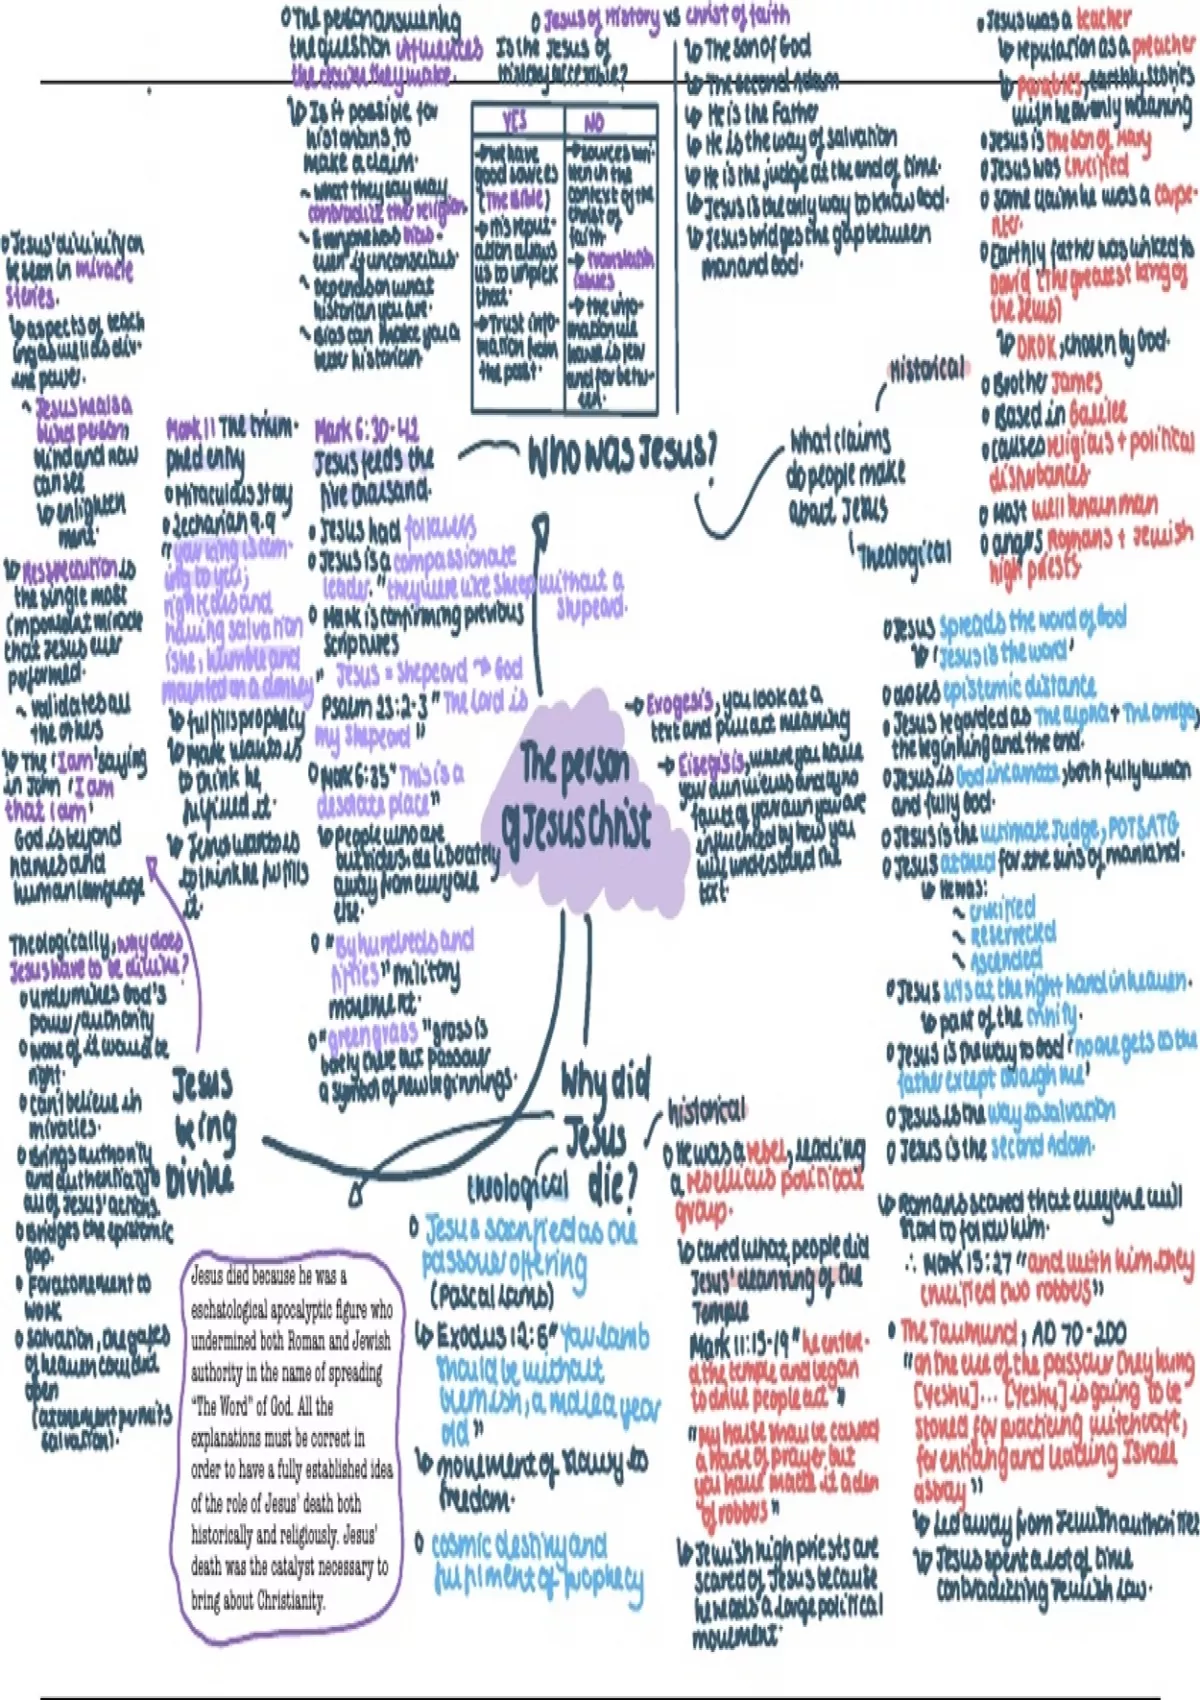 The person answering
the question influences
the claims they make.
Is it possible for
historians to
make a claim.
~ what they say may
contradict the religion
~ Everyone has bias -
even if unconscious.
~ Depends on what
historian you are.
~ Bias can make you a
historian
Jesus of History vs Christ of faith
Is the Jesus of
history accessible?
YES
NO
→ we have
good sources
(The Bible)
→ its reput-
ation allows
us to unpick
that.
→ Trust infor-
mation from
the past.
→ sources wri-
ten in the
context of the
Christ of
faith
→ translation
issues
→ the info-
mation we
have is few
and far betw-
een.
The son of God
The second Adam
He is the Father
He is the way of salvation
He is the judge at the end of time.
Jesus is the only way to know God.
Jesus bridges the gap between
man and God.
Jesus was a teacher
reputation as a preacher
parables, earthly stories
with heavenly meaning
Jesus is the son of Mary
Jesus was crucified
some claim he was a carpe-
nter.
Earthly father was linked to
David (the greatest king of
the Jews)
DKOK, chosen by God.
Brother James
Based in Galilee
causes religious + political
disturbances.
Most well known man
angers Romans + Jewish
high priests.
Jesus' divinity can
be seen in miracle
stories.
aspects of teach
ing as well as div-
ine power.
~ Jesus heals a
blind person,
blind and now
can see
enlighten
ment.
Ressurection is
the single most
important miracle
that Jesus ever
performed.
~ validates all
the others
The 'I am' saying
in John 'I am
that I am'
God is beyond
names and
human language
Mark 11 The trium-
phed entry
Miraculous story
Zechariah 9:9
"your king is com-
ing to you;
righteous and
having salvation
is he, humble and
mounted on a donkey
fulfills prophecy
Mark wants us
to think he
fulfilled it.
Jesus wants us
to think he fulfills
it.
Mark 6:30-42
Jesus feeds the
five thousand.
Jesus had followers
Jesus is a compassionate
leader. "they were like sheep without a
shepeard.
Mark is confirming previous
scriptures
" Jesus = shepeard → God
Psalm 23:2-3 " The Lord is
my shepeard "
Mark 6:35 " This is a
desolate place"
people who are
outsiders, deliberately
away from everyone
else.
" By hundreds and
fifties " military
movement.
"green grass " grass is
barely there but passover
a symbol of new beginnings.
Who was Jesus?
What claims
do people make
about Jesus
Historical
Theological
The person
of Jesus Christ
→ Exogesis, you look at a
text and pull out meaning
→ Eisegisis, where you have
your own views and
of your own you are
influenced by how you
will understand the
text.
Jesus spreads the word of God
'Jesus is the word'
closes epistemic distance
Jesus regarded as The alpha + The omega,
the beginning and the end.
Jesus is God incarnate, both fully human
and fully God.
Jesus is the ultimate Judge, POTSATG
Jesus atoned for the sins of mankind.
He was:
~ crucified
~ reserrected
~ Ascended
Jesus sits at the right hand in heaven.
part of the trinity.
Jesus is the way to God 'no one gets to the
father except through me'
Jesus is the way to salvation
Jesus is the second Adam.
Theologically, why does
Jesus have to be divine?
undermines God's
power/authority
none of it would be
right.
can't believe in
miracles.
Brings authority
and authenticity to
all of Jesus' actions.
Bridges the epistemic
gap.
For atonement to
work
Salvation, the gates
of heaven couldn't
open
(atonement permits
salvation).
Jesus
being
Divine
Jesus died because he was a
eschatological apocalyptic figure who
undermined both Roman and Jewish
authority in the name of spreading
"The Word" of God. All the
explanations must be correct in
order to have a fully established idea
of the role of Jesus' death both
historically and religiously. Jesus'
death was the catalyst necessary to
bring about Christianity.
Why did
Jesus
die?
theological
Jesus sacrificed as the
passover offering
(Pascal Lamb)
Exodus 12:5 "You lamb
should be without
blemish, a male a year
old"
movement of slavery to
freedom.
cosmic destiny and
fulfilment of prophecy
historical
He was a rebel, leading
a rebellious political
group.
cared what people did
Jesus' cleansing of the
Temple
Mark 11:15-19 "he enter-
d the temple and began
to drive people out"
"My house shall be called
a house of prayer but
you have made it a den
of robbers"
Jewish high priests are
scared of Jesus because
he heads a large political
movement.
Romans scared that everyone will
start to follow him.
∴ Mark 15:27 "and with him they
crucified two robbers"
The Taumund, AD 70-200
"on the eve of the passover they hung
[Yeshu]... [Yeshu] is going to be
stoned for practicing witchcraft,
for and leading Israel
astray "
Led away from Jewish authorities
Jesus spent a lot of time
contradicting Jewish Law.